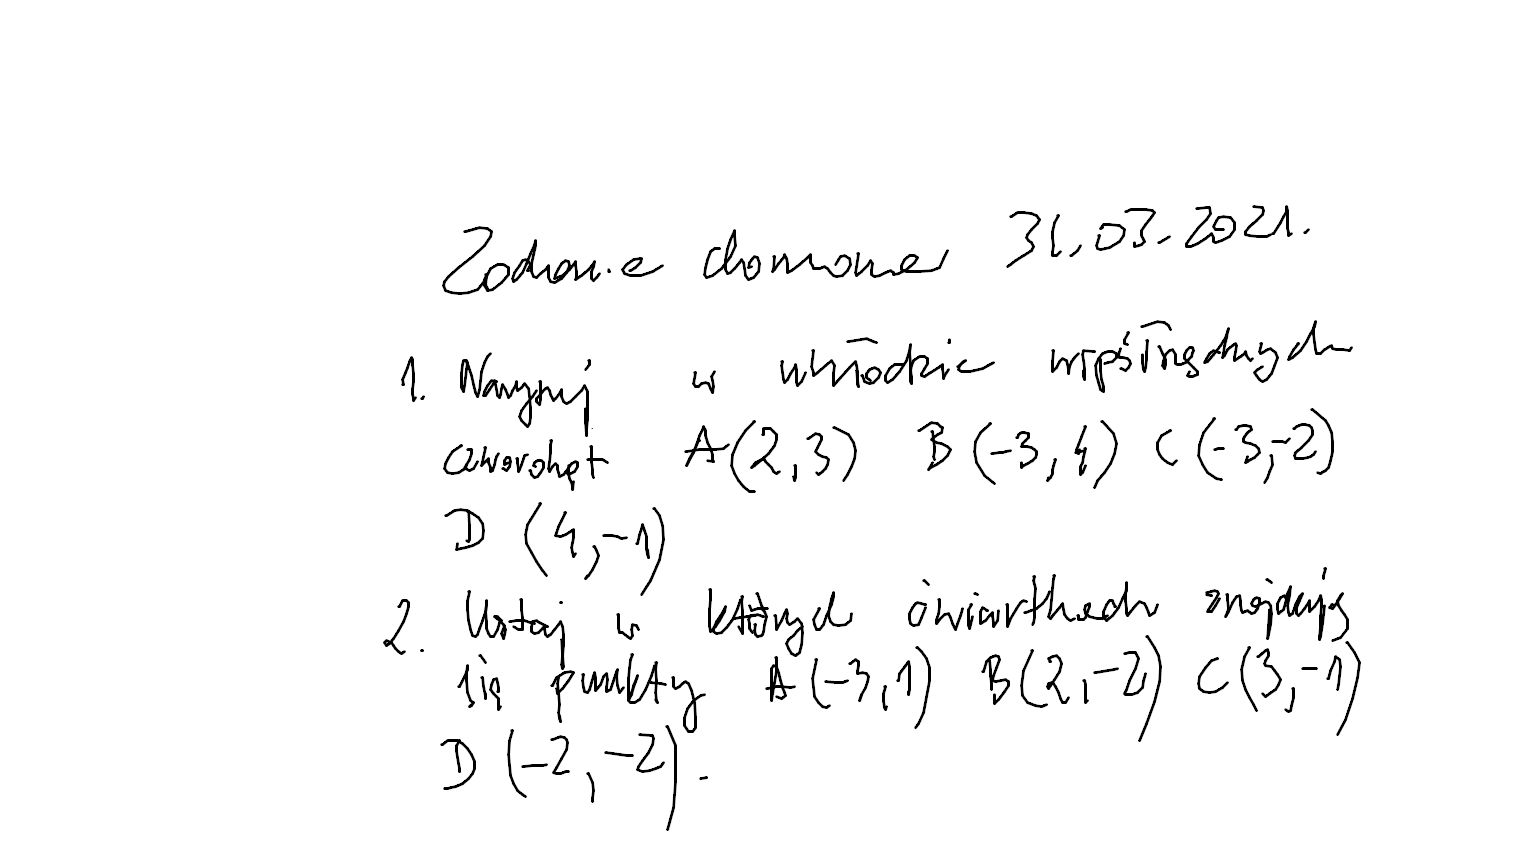 Zadanie domowe 31.03.2021.
1. Narysuj w układzie współrzędnych
czworokąt A(2,3) B(-3,4) C(-3,-2)
D (4,-1)
2. Ustal w których ćwiartkach znajdują
się punkty A(-3,1) B(2,-2) C(3,-1)
D (-2,-2).